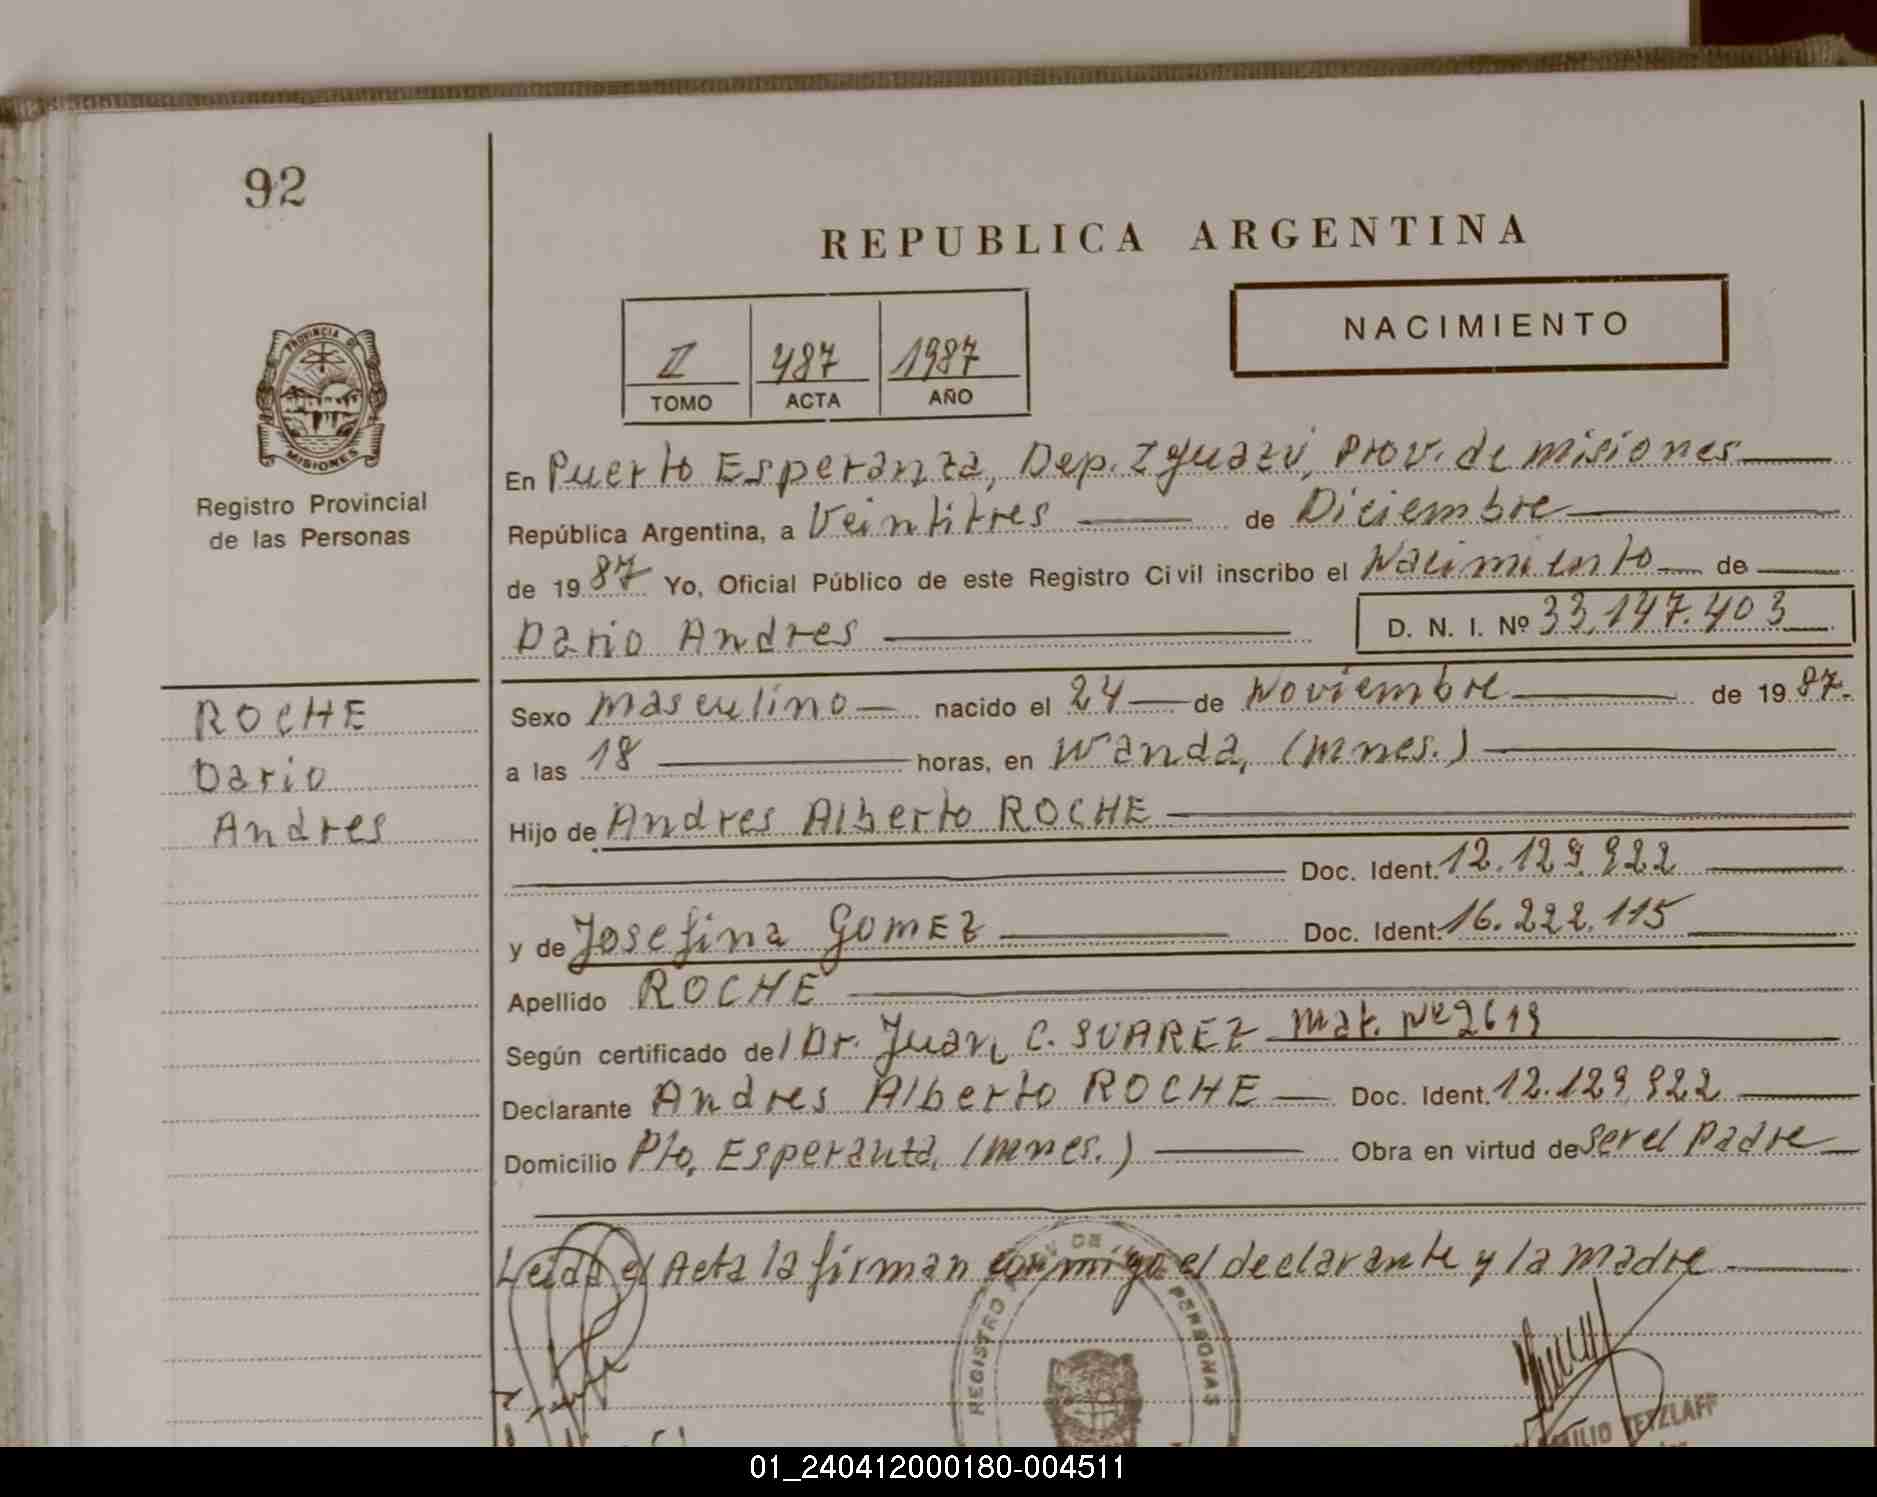 92
REPUBLICA ARGENTINA
NACIMIENTO
II 487 1987
TOMO ACTA AÑO
PROVINCIA DE
MISIONES
Registro Provincial
de las Personas
En Puerto Esperanza, Dep. Iguazú, Prov. de Misiones
República Argentina, a Veintitres de Diciembre
de 1987 Yo, Oficial Público de este Registro Civil inscribo el Nacimiento de
Dario Andres D. N. I. Nº 33.147.403
ROCHE
Dario
Andres
Sexo masculino nacido el 24 de Noviembre de 1987.
a las 18 horas, en Wanda, (mnes.)
Hijo de Andres Alberto ROCHE
Doc. Ident. 12.129.922
y de Josefina GOMEZ Doc. Ident. 16.222.115
Apellido ROCHE
Según certificado del Dr. Juan C. SUAREZ Mat. Nº 2619
Declarante Andres Alberto ROCHE Doc. Ident. 12.129.922
Domicilio Pto. Esperanza, (mnes.) Obra en virtud de ser el Padre
Leida el Acta la firman conmigo el declarante y la madre
REGISTRO DE PERSONAS
TETZLAFF
01_240412000180-004511